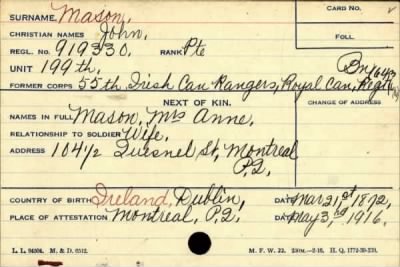 SURNAME. Mason, CARD NO.
CHRISTIAN NAMES John, FOLL.
REGL. NO. 919330. RANK Pte
UNIT 199th,
FORMER CORPS 55th, Irish Can Rangers, Royal Can, Regt
NEXT OF KIN. CHANGE OF ADDRESS
NAMES IN FULL Mason, Mrs Anne.
RELATIONSHIP TO SOLDIER Wife,
ADDRESS 104½ Quesnel St, Montreal
P.Q.
COUNTRY OF BIRTH Ireland, Dublin, DATE Mar 21st 1872,
PLACE OF ATTESTATION Montreal, P.Q. DATE May 3rd, 1916.
M. F. W. 22.